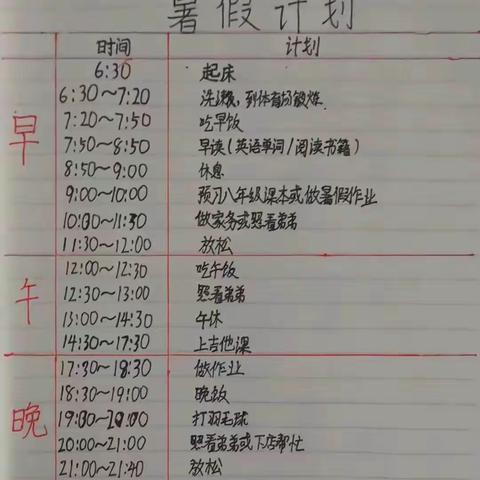 暑假计划
时间 计划
早
6:30 起床
6:30~7:20 洗漱,到体育场锻炼
7:20~7:50 吃早饭
7:50~8:50 早读(英语单词/阅读书籍)
8:50~9:00 休息
9:00~10:00 预习八年级课本或做暑假作业
10:00~11:30 做家务或照看弟弟
11:30~12:00 放松
午
12:00~12:30 吃午饭
12:30~13:00 照看弟弟
13:00~14:30 午休
14:30~17:30 上吉他课
晚
17:30~18:30 做作业
18:30~19:00 晚饭
19:00~20:00 打羽毛球
20:00~21:00 照看弟弟或下店帮忙
21:00~21:40 放松